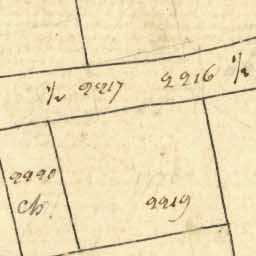 1/2 2217 2216 1/2
2220
Ch.
2219